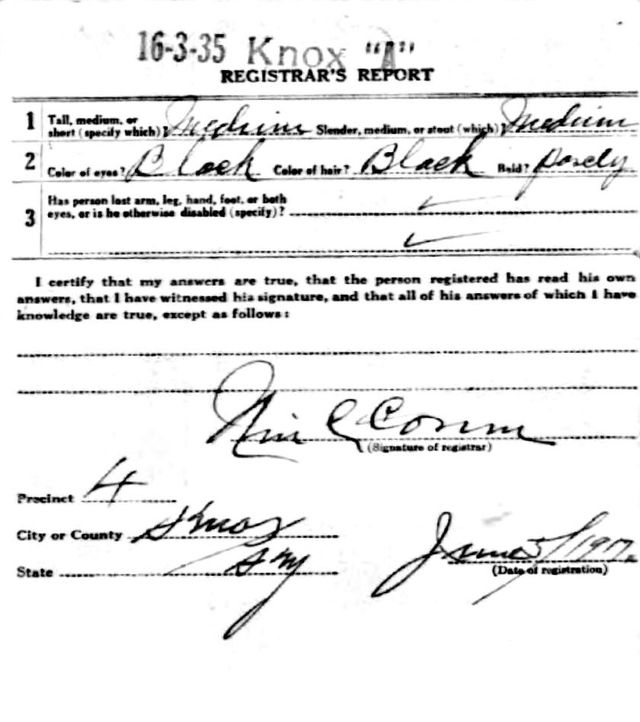 16-3-35 Knox "A"
REGISTRAR'S REPORT
1 Tall, medium, or short (specify which)? Medium Slender, medium, or stout (which)? Medium
2 Color of eyes? Black Color of hair? Black Bald?
3 Has person lost arm, leg, hand, foot, or both eyes, or is he otherwise disabled (specify)? ✓
✓
I certify that my answers are true, that the person registered has read his own
answers, that I have witnessed his signature, and that all of his answers of which I have
knowledge are true, except as follows:
(Signature of registrar)
Precinct 4
City or County Knox
State Ky
June 5/1917
(Date of registration)